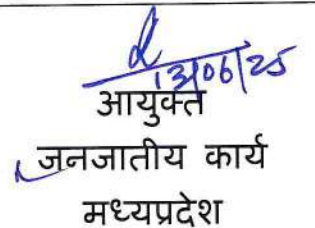 13/06/25
आयुक्त
जनजातीय कार्य
मध्यप्रदेश